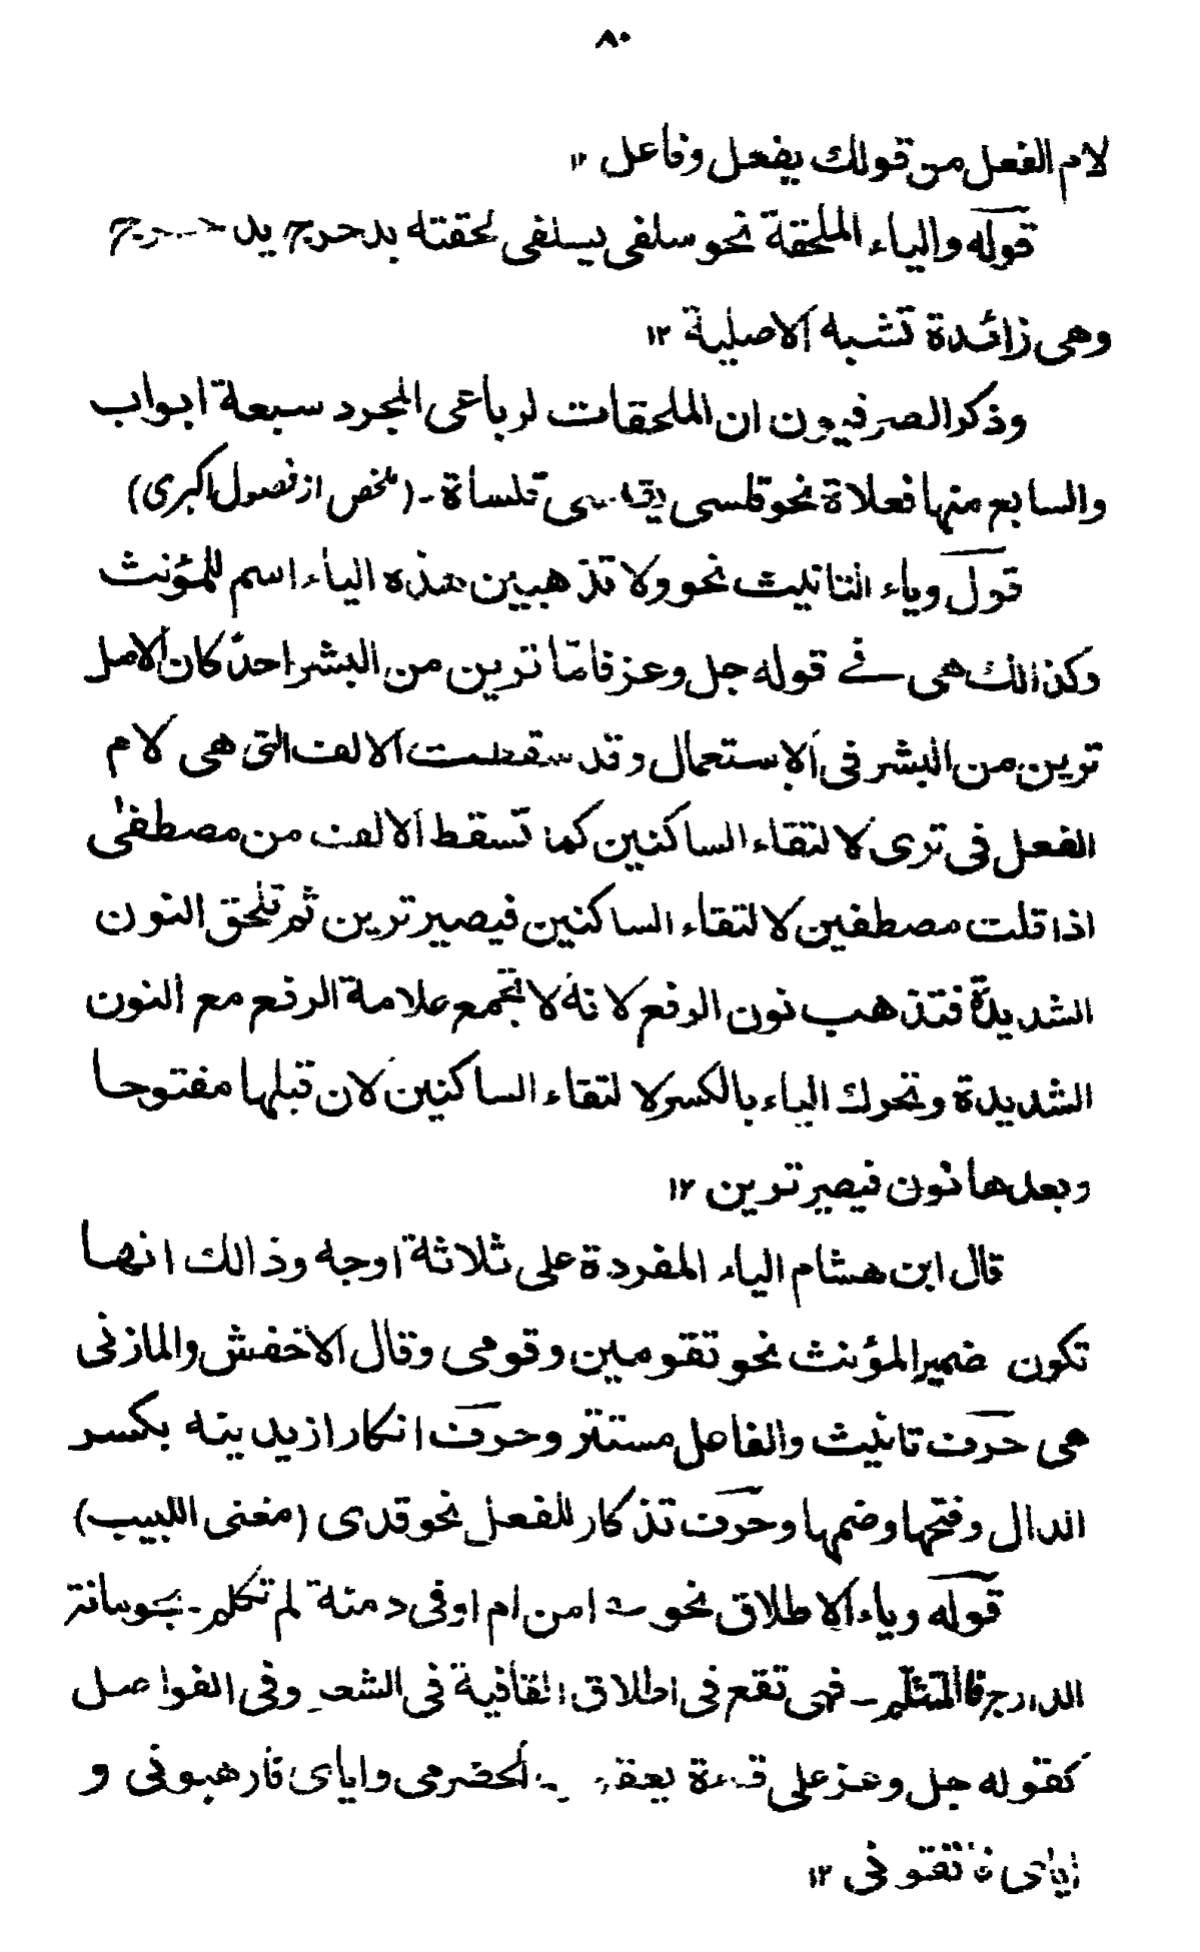 ٨٠
لام الفعل من قولك يفعل وفاعل ١٢
قوله والياء الملحقة نحو سلقى يسلقى لحقته بدحرج يدحرج
وهى زائدة تشبه الاصلية ١٢
وذكر الصرفيون ان الملحقات لرباعى المجرد سبعة ابواب
والسابع منها فعلاة نحو قلسى يقلسى قلساة - (ملخص از فصول اکبری)
قول وياء التانيث نحو ولا تذهبين هذه الياء اسم للمؤنث
وكذالك هى فے قوله جل وعز فامّا ترين من البشر احدً كان الاصل
ترين من البشر فى الاستعمال وقد سقطت الالف التى هى لام
الفعل فى ترى لالتقاء الساكنين كما تسقط الالف من مصطفىٰ
اذا قلت مصطفين لالتقاء الساكنين فيصير ترين ثم تلحق النون
الشديدّة فتذهب نون الرفع لانه لا تجمع علامة الرفع مع النون
الشديدة وتحرك الياء بالكسر لالتقاء الساكنين لان قبلها مفتوحا
وبعدها نون فيصير ترين ١٢
قال ابن هشام الياء المفردة على ثلاثة اوجه وذالك انها
تكون ضمير المؤنث نحو تقومين وقومى وقال الاخفش والمازنى
هى حرف تانيث والفاعل مستتر وحرف انكار ازيدينه بكسر
الدال وفتحها وضمها وحرف تذكار للفعل نحو قدى (مغنى اللبيب)
قوله وياء الاطلاق نحو ؎ امن ام اوفى دمنة لم تكلم - بحومانة
الدراج فالمتثلّم - فهى تقع فى اطلاق القافية فى الشعر وفى الفواصل
كقوله جل وعز على قراءة يعقوب الحضرمى واياى فارهبونى و
اياى فاتقونى ١٢